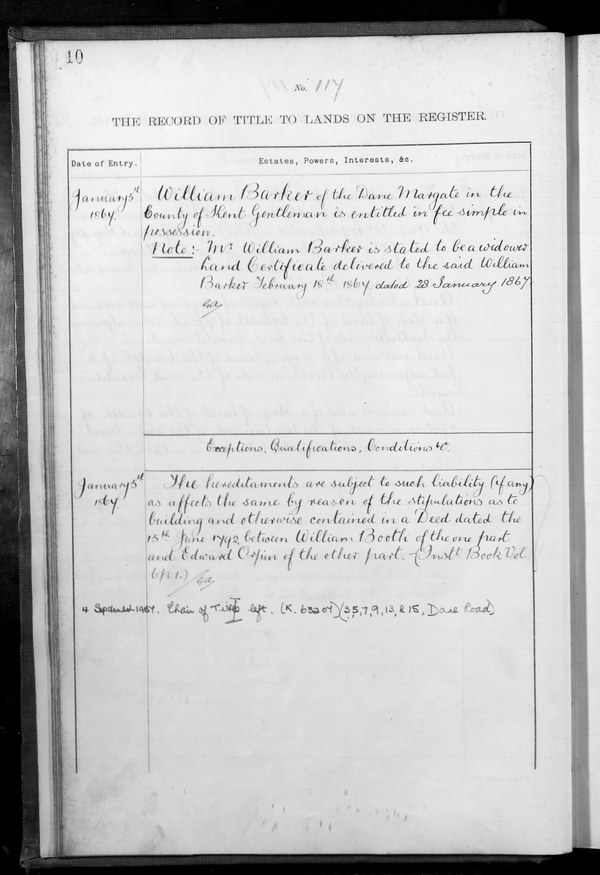 10
No. 117
THE RECORD OF TITLE TO LANDS ON THE REGISTER.
Date of Entry.
Estates, Powers, Interests, &c.
January 5th
1867.
William Barker of the Dane Margate in the
County of Kent Gentleman is entitled in fee simple in
possession.
Note:- Mr William Barker is stated to be a widower
Land Certificate delivered to the said William
Barker February 18th 1867. dated 28 January 1867.
Exceptions, Qualifications, Conditions &c.
January 5th
1867.
The hereditaments are subject to such liability (if any)
as affects the same by reason of the stipulations as to
building and otherwise contained in a Deed dated the
15th June 1792 between William Booth of the one part
and Edward Orpin of the other part. (Instt. Book Vol
6 p 1.)
4 1957. Chain of Title left. (K. 63207) (3,5,7,9,13, & 15, Dane Road)